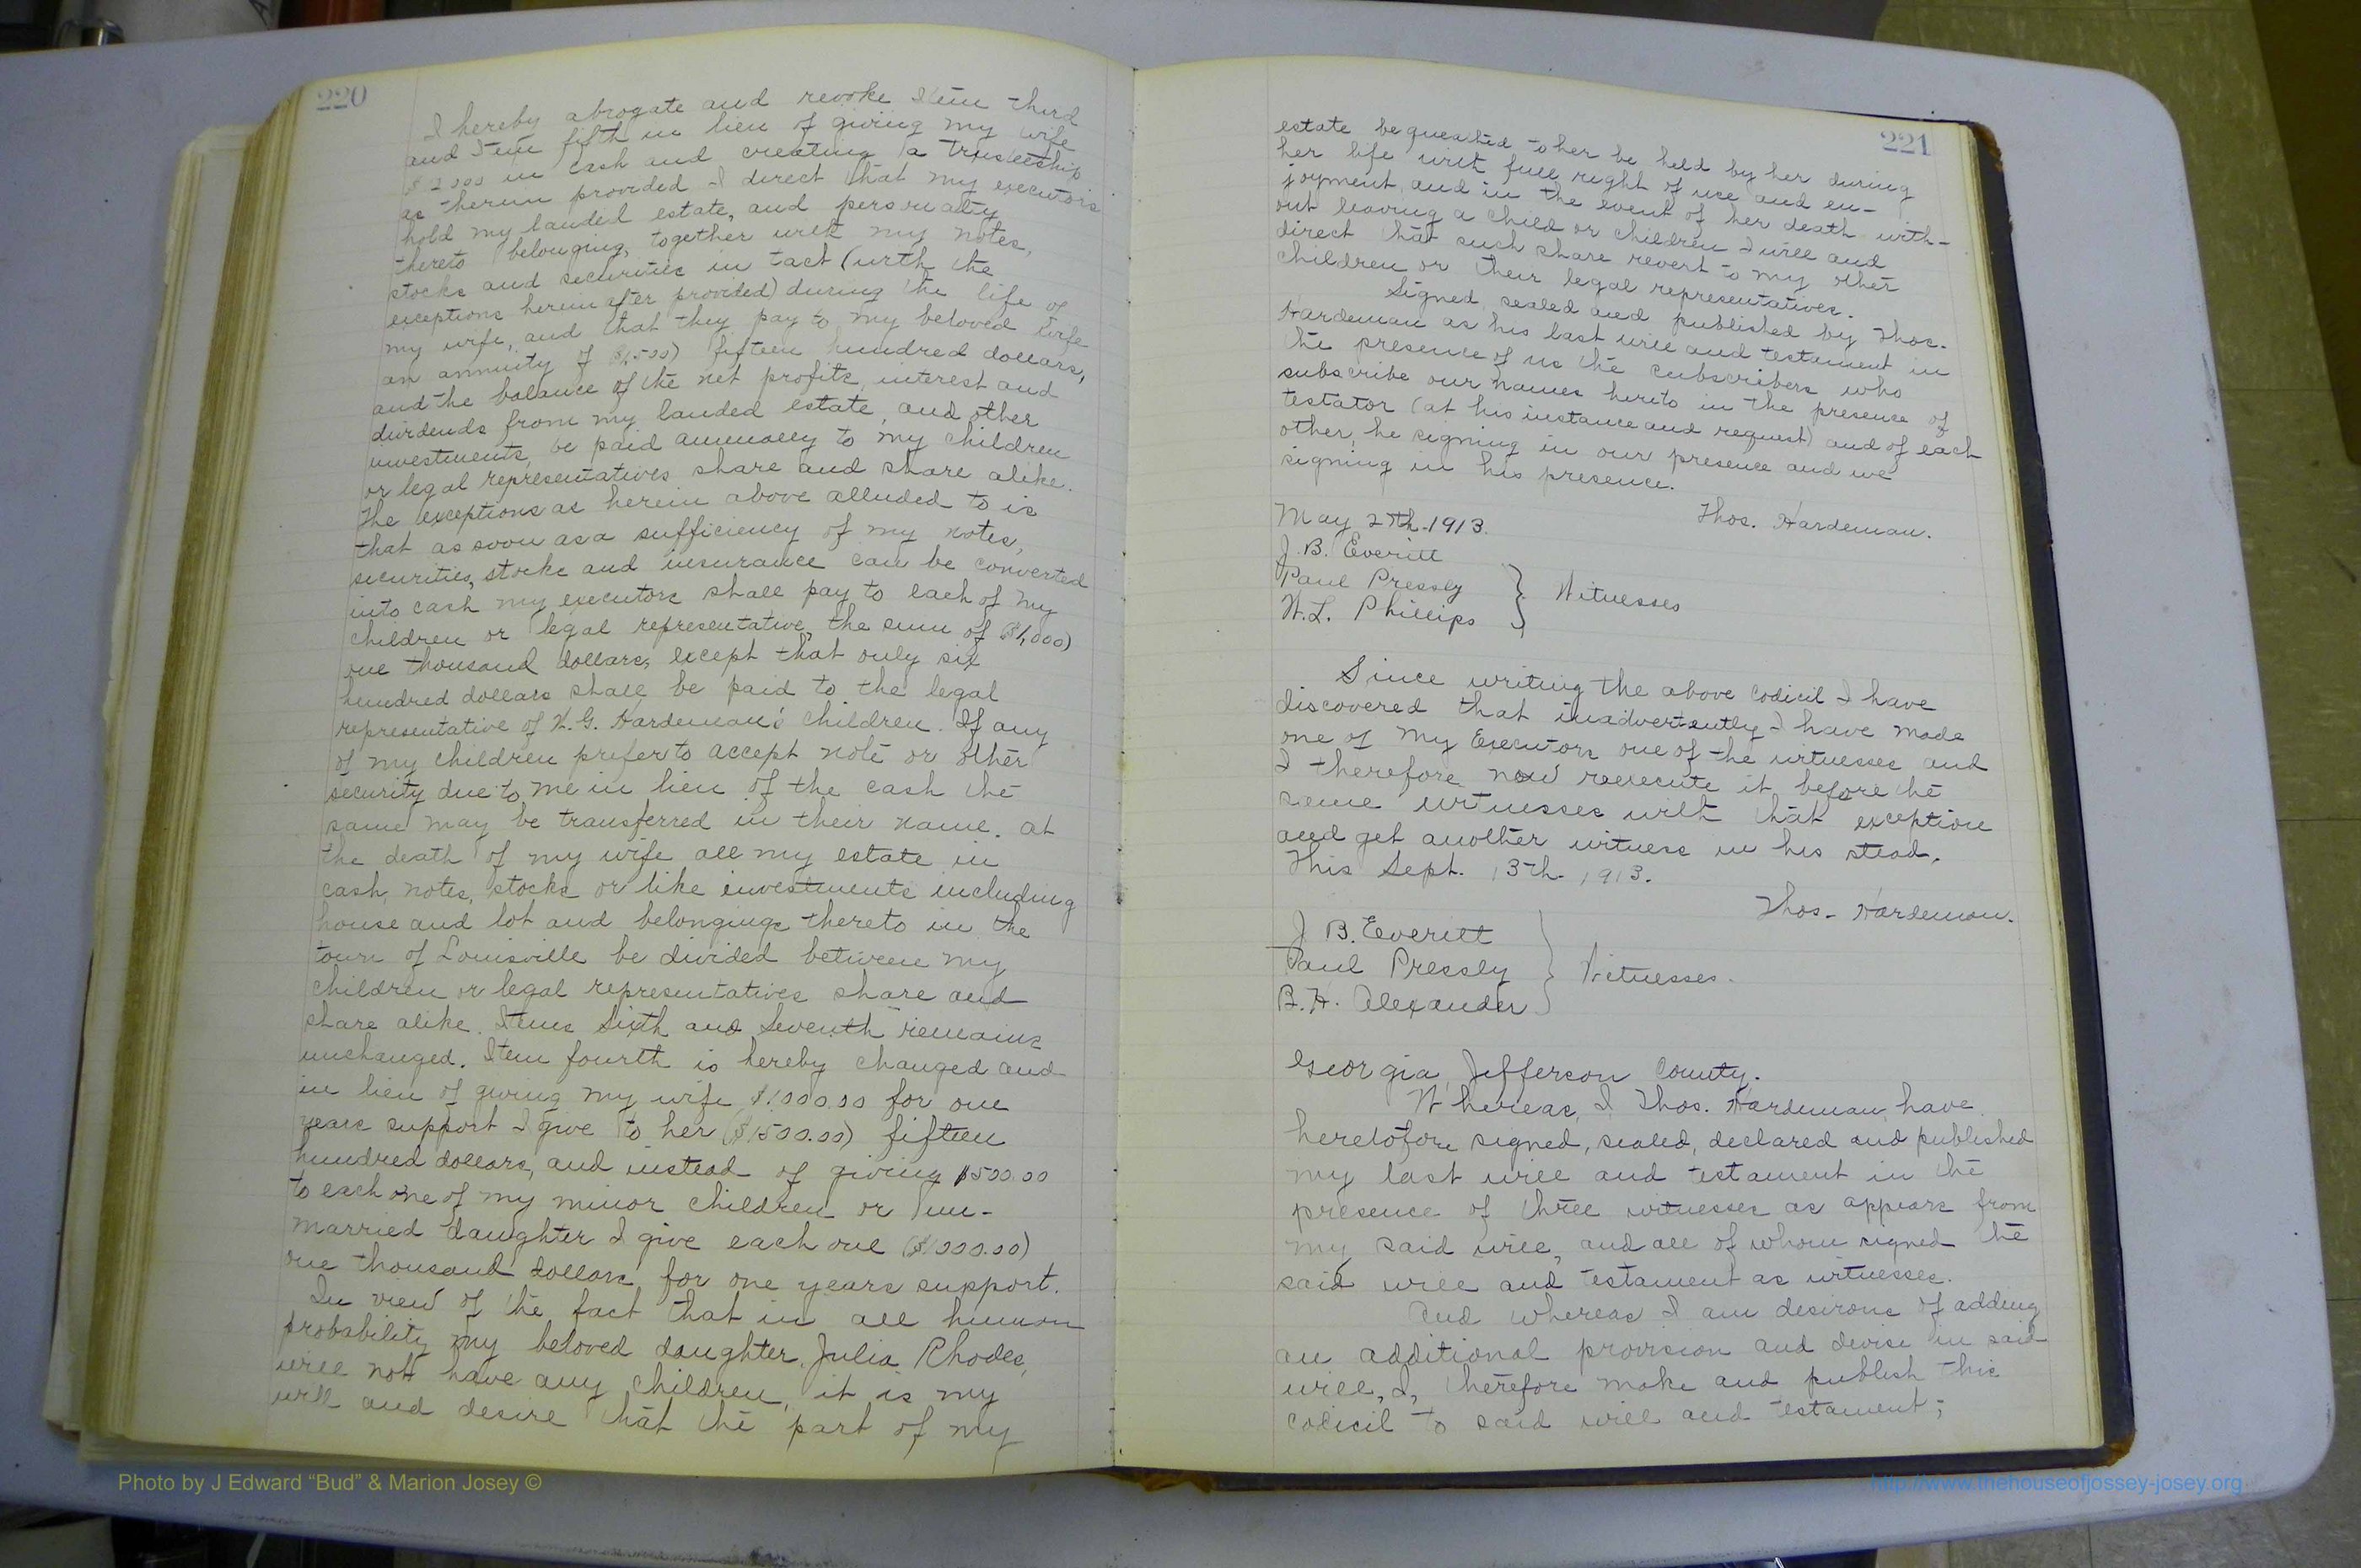 220
I hereby abrogate and revoke Item third
and Item fifth in lieu of giving my wife
$2000 in cash and creating a trusteeship
as therein provided I direct that my executors
hold my landed estate, and personalty
thereto belonging, together with my notes,
stocks and securities in tact (with the
exceptions herein after provided) during the life of
my wife, and that they pay to my beloved wife
an annuity of $1,500) fifteen hundred dollars,
and the balance of the net profits, interest and
dividends from my landed estate, and other
investments, be paid annually to my children
or legal representatives share and share alike.
The exceptions as herein above alluded to is
that as soon as a sufficiency of my notes,
securities, stocks and insurance can be converted
into cash my executors shall pay to each of my
children or legal representative, the sum of ($1,000)
one thousand dollars, except that only six
hundred dollars shall be paid to the legal
representative of W. G. Hardeman's children. If any
of my children prefer to accept note or other
security due to me in lieu of the cash the
same may be transferred in their name. at
the death of my wife all my estate in
cash, notes, stocks or like investments including
house and lot and belongings thereto in the
town of Louisville be divided between my
children or legal representatives share and
share alike. Items Sixth and Seventh remains
unchanged. Item fourth is hereby changed and
in lieu of giving my wife $1000.00 for one
years support I give to her ($1500.00) fifteen
hundred dollars, and instead of giving $500.00
to each one of my minor children or un-
married daughter I give each one ($1000.00)
one thousand dollars for one years support.
In view of the fact that in all human
probability my beloved daughter, Julia Rhodes,
will not have any children, it is my
will and desire that the part of my
221
estate bequeathed to her be held by her during
her life with full right of use and en-
joyment, and in the event of her death with-
out leaving a child or children I will and
direct that such share revert to my other
children or their legal representatives.
Signed, sealed and published by Thos.
Hardeman as his last will and testament in
the presence of us the subscribers who
subscribe our names hereto in the presence of
testator (at his instance and request) and of each
other, he signing in our presence and we
signing in his presence.
Thos. Hardeman.
May 27th-1913.
J. B. Everitt
Paul Pressly } Witnesses
W. L. Phillips
Since writing the above codicil I have
discovered that inadvertently I have made
one of my Executors one of the witnesses and
I therefore now reexecute it before the
same witnesses with that exception
and get another witness in his stead.
This Sept. 13th- 1913.
Thos- Hardeman.
J. B. Everitt
Paul Pressly } Witnesses.
B. H. Alexander
Georgia, Jefferson County.
Whereas, I Thos. Hardeman, have
heretofore signed, sealed, declared and published
my last will and testament in the
presence of three witnesses as appears from
my said will, and all of whom signed the
said will and testament as witnesses.
And whereas I am desirous of adding
an additional provision and devise in said
will, I, therefore make and publish this
codicil to said will and testament;
Photo by J Edward “Bud” & Marion Josey ©
http://www.thehouseofjossey-josey.org